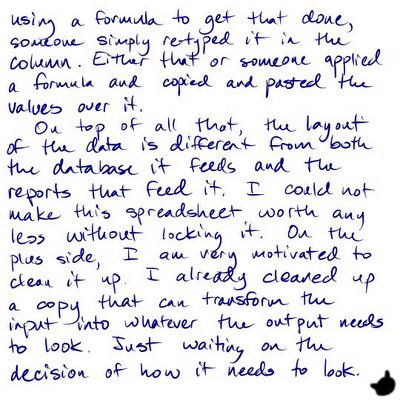 using a formula to get that done,
someone simply re-typed it in the
column. Either that or someone applied
a formula and copied and pasted the
values over it.
On top of all that, the layout
of the data is different from both
the database it feeds and the
reports that feed it. I could not
make this spreadsheet worth any
less without locking it. On the
plus side, I am very motivated to
clean it up. I already cleaned up
a copy that can transform the
input into whatever the output needs
to look. Just waiting on the
decision of how it needs to look.